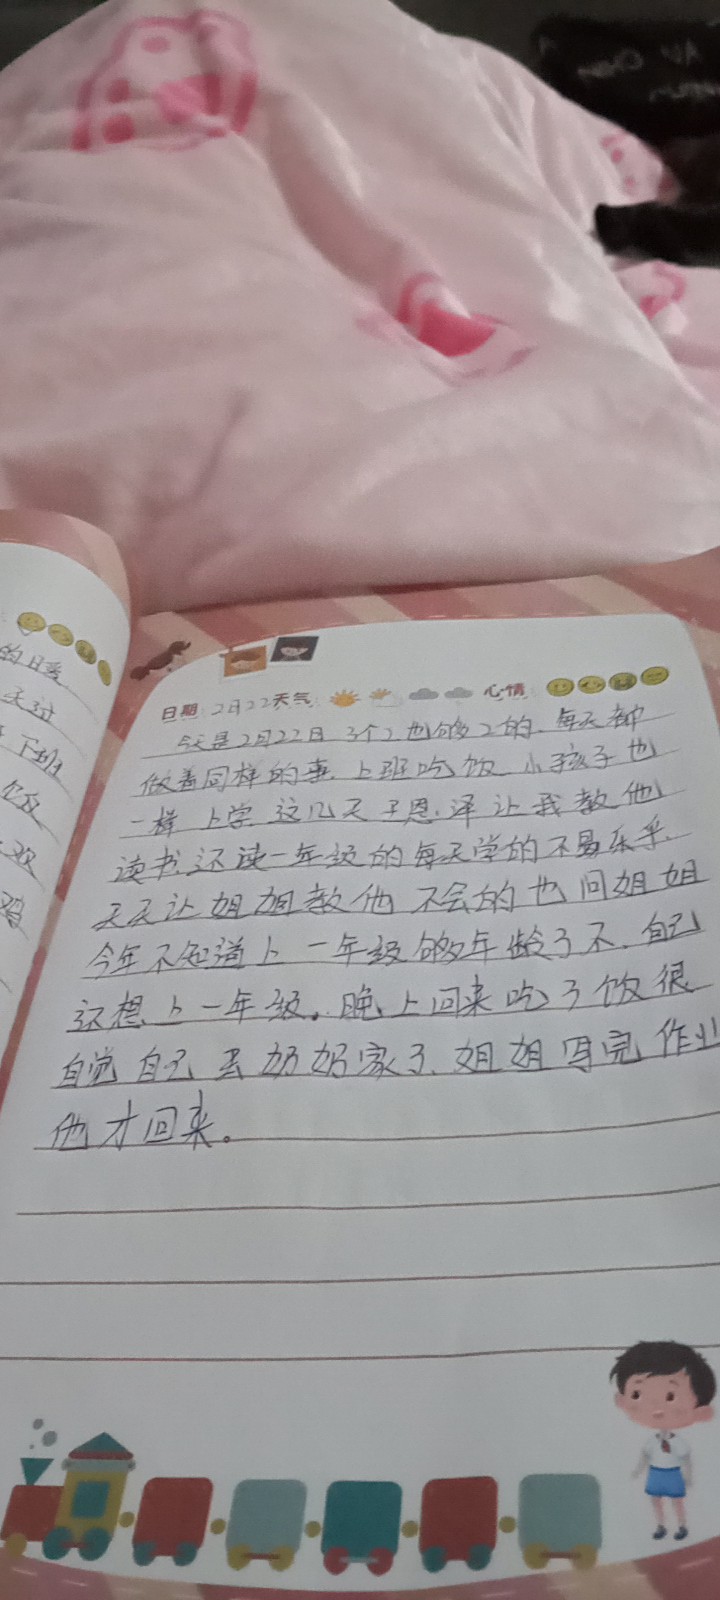 的日爱
天过
下班
饭
欢
鸡
日期：2月22天气：心情：
今天是2月22日 3个2也够2的、每天都
做着同样的事、上班吃饭 小孩子也
一样 上学 这几天 王恩泽让我教他
读书、还读一年级的每天学的不易乐乎、
天天让姐姐教他 不会的也问姐姐
今年不知道上一年级够年龄了不、自己
还想上一年级。晚上回来吃了饭很
自觉自己去奶奶家了、姐姐写完作业
他才回来。